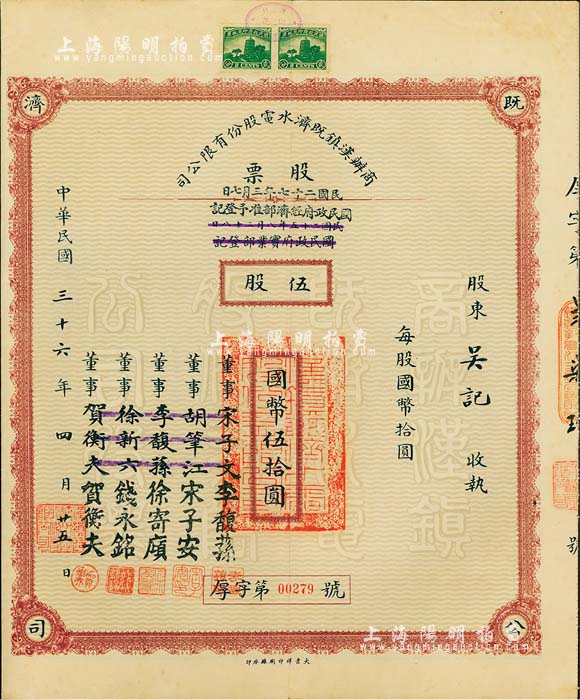 上海陽明拍賣
yangmingauction.com
既
濟
公
司
商辦漢鎮既濟水電股份有限公司
股票
民國二十七年三月七日
國民政府經濟部准予登記
民國十五年八月二十八日
國民政府實業部登記
伍股
股東 吴記 收執
每股國幣拾圓
國幣伍拾圓
董事 宋子文 李馥蓀
董事 胡筆江 宋子安
董事 李馥蓀 徐寄廎
董事 徐新六 錢永銘
董事 賀衡夫 賀衡夫
中華民國 三十六年 四月 廿五日
厚字第 00279 號
厚字第
號
上海陽明拍賣
www.yangmingauction.com
上海陽明拍賣
yangmingauction.com